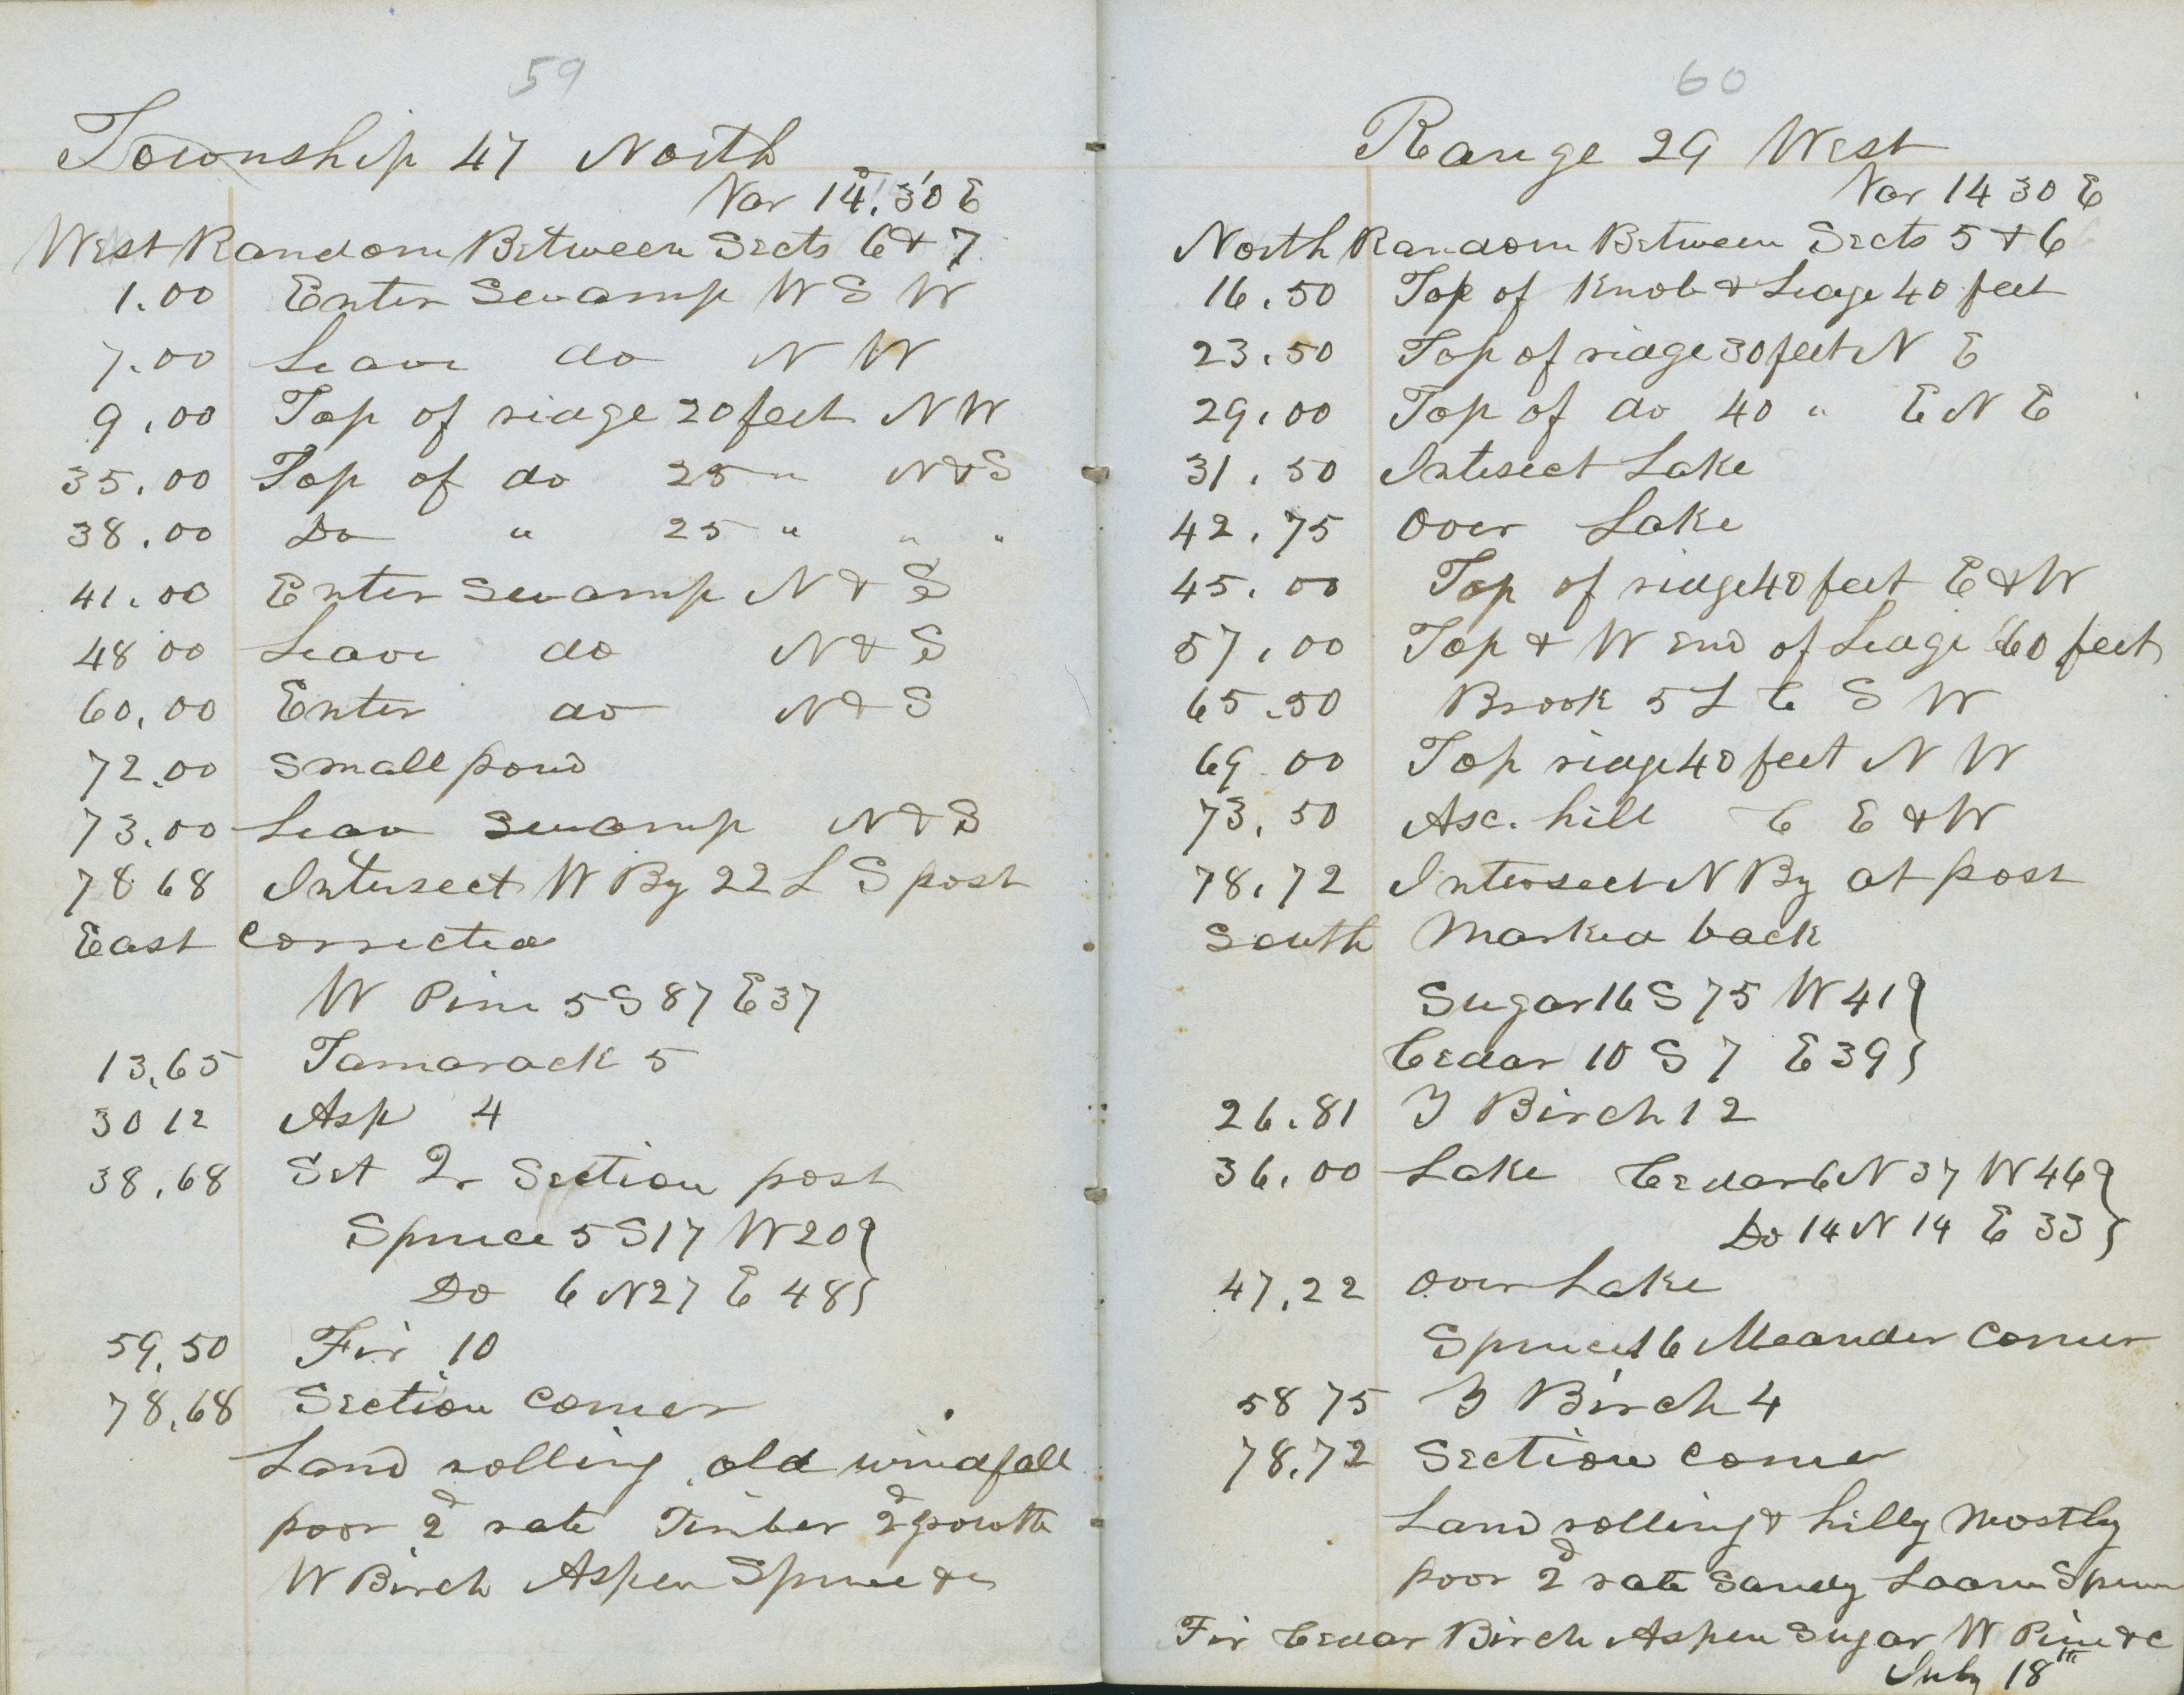 59
Township 47 North
Var 14°.30' E
West Random Between Sects 6 & 7
1.00 Enter Swamp W S W
7.00 Leave do N W
9.00 Top of ridge 20 feet N W
35.00 Top of do 25 " N & S
38.00 Do " 25 " " "
41.00 Enter Swamp N & S
48 00 Leave do N & S
60.00 Enter do N & S
72.00 Small pond
73.00 Leav Swamp N & S
78 68 Intersect W By 22 L S post
East Corrected
W Pine 5 S 87 E 37
13.65 Tamarack 5
30 12 Asp 4
38.68 Set Qr Section post
Spruce 5 S 17 W 20 }
Do 6 N 27 E 48 }
59.50 Fir 10
78.68 Section Corner
Land rolling old windfall
poor 2d rate Timber 2d growth
W Birch Aspen Spruce &c
60
Range 29 West
Var 14 30 E
North Random Between Sects 5 & 6
16.50 Top of Knob & Ledge 40 feet
23.50 Top of ridge 30 feet N E
29.00 Top of do 40 " E N E
31.50 Intesect Lake
42.75 Over Lake
45.00 Top of ridge 40 feet E & W
57.00 Top & W End of Ledge 60 feet
65.50 Brook 5 L C S W
69 00 Top ridge 40 feet N W
73.50 Asc. hill C E & W
78.72 Intersect N By at post
South Marked back
Sugar 16 S 75 W 41 }
Cedar 10 S 7 E 39 }
26.81 Y Birch 12
36.00 Lake Cedar 6 N 37 W 46 }
Do 14 N 14 E 33 }
47.22 Over Lake
Spruce 16 Meander Corner
58 75 Y Birch 4
78.72 Section Corner
Land rolling & hilly Mostly
poor 2d rate Sandy Loam Spruce
Fir Cedar Birch Aspen Sugar W Pine &c
July 18th